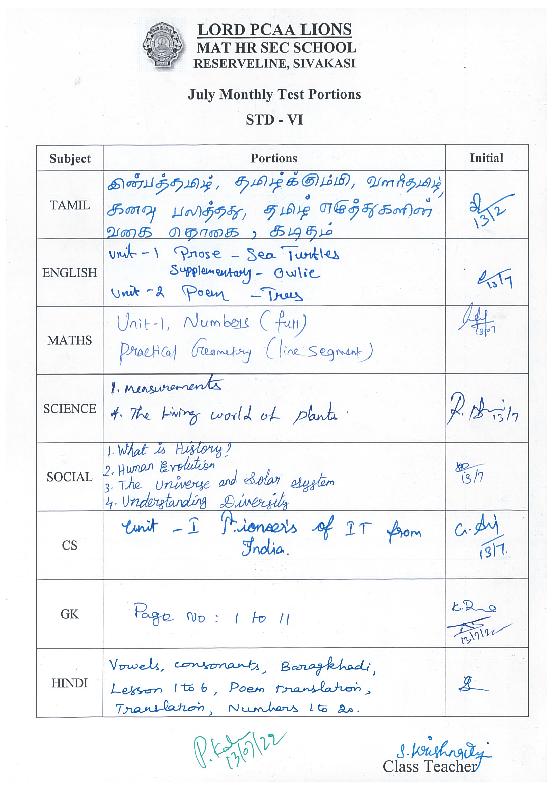 LORD PCAA LIONS
MAT HR SEC SCHOOL
RESERVELINE, SIVAKASI
July Monthly Test Portions
STD - VI
Subject Portions Initial
TAMIL
இன்பத்தமிழ், தமிழ்க்கும்மி, வளர்தமிழ்,
கனவு பலித்தது, தமிழ் எழுத்துகளின்
வகை தொகை, கடிதம்
13/2
ENGLISH
Unit - 1 Prose - Sea Turtles
Supplementary - Owlie
Unit - 2 Poem - Trees
13/7
MATHS
Unit-1, Numbers (full)
Practical Geometry (line segment)
13/07
SCIENCE
1. Measurements
4. The living world of plants
13/7
SOCIAL
1. What is History?
2. Human Evolution
3. The Universe and Solar system
4. Understanding Diversity
13/7
CS
Unit - I Pioneers of IT from
India.
13/7
GK
Page No : 1 to 11
13/7/22
HINDI
Vowels, consonants, Baragkhadi,
Lesson 1 to 6, Poem translation,
Translation, Numbers 1 to 20.
13/07/22
Class Teacher